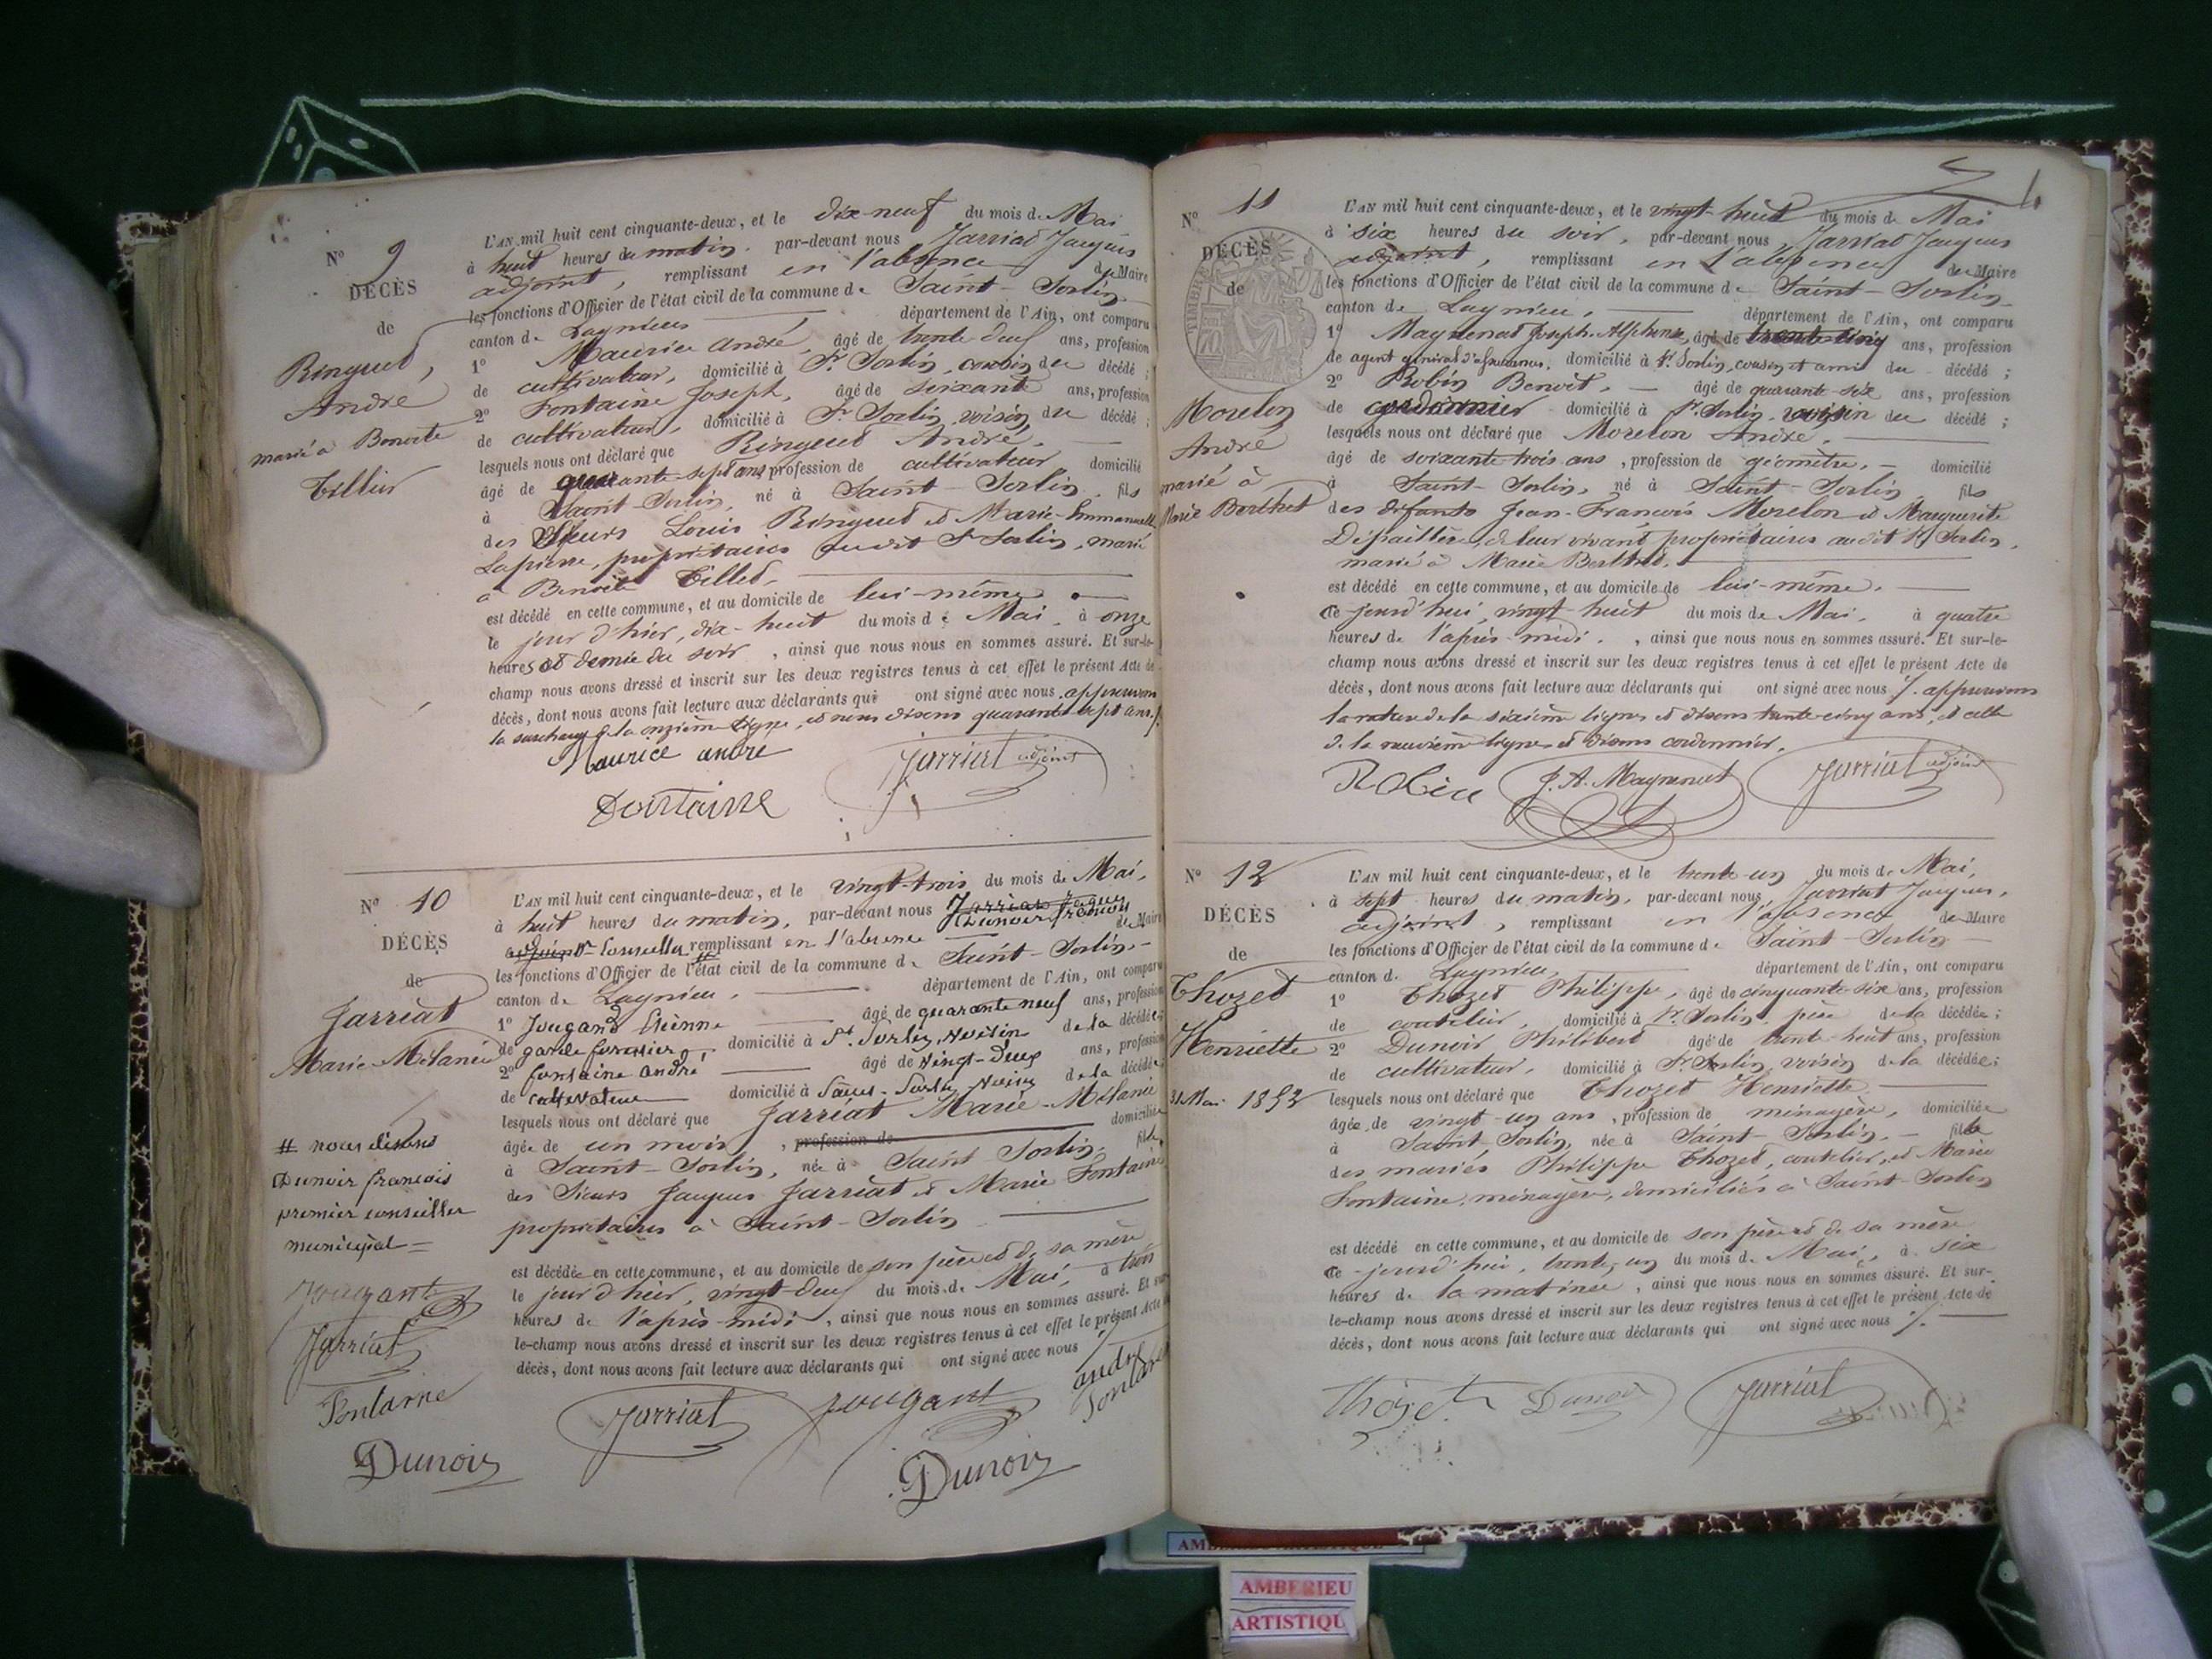 N° 9
DÉCÈS
de
Ringuet,
André
marié à Benoite
Tillier
L'AN mil huit cent cinquante-deux, et le dix-neuf du mois de Mai
à huit heures du matin, par-devant nous Jarriat Jacques
adjoint, remplissant en l'absence du Maire
les fonctions d'Officier de l'état civil de la commune de Saint-Sorlin
canton de Lagnieu département de l'Ain, ont comparu
1° Maurice André, âgé de trente deux ans, profession
de cultivateur, domicilié à St Sorlin, cousin du décédé ;
2° Fontaine Joseph, âgé de soixante ans, profession
de cultivateur, domicilié à St Sorlin, voisin du décédé ;
lesquels nous ont déclaré que Ringuet André,
âgé de quarante-sept ans, profession de cultivateur domicilié
à Saint-Sorlin, né à Saint-Sorlin, fils
des Sieurs Louis Ringuet et Marie-Emmanuelle
Lapierre, propriétaires audit St Sorlin, marié
à Benoite Tillet,
est décédé en cette commune, et au domicile de lui-même
le jour d'hier, dix-huit du mois de Mai, à onze
heures et demie du soir, ainsi que nous nous en sommes assuré. Et sur-le-
champ nous avons dressé et inscrit sur les deux registres tenus à cet effet le présent Acte de
décès, dont nous avons fait lecture aux déclarants qui ont signé avec nous, approuvons
la surcharge de la onzième ligne, et nous disons quarante-sept ans.
Maurice andre
Jarriat adjoint
Fontaine
N° 10
DÉCÈS
de
Jarriat
Marie-Mélanie
# nous disons
Dunoir françois
premier conseiller
municipal =
Jougant
Jarriat
Fontaine
Dunoir
L'AN mil huit cent cinquante-deux, et le vingt-trois du mois de Mai,
à huit heures du matin, par-devant nous Jarriat Jacques
Dunoir françois
adjoint conseiller remplissant en l'absence du Maire
les fonctions d'Officier de l'état civil de la commune de Saint-Sorlin,
canton de Lagnieu, département de l'Ain, ont comparu
1° Jougand Etienne âgé de quarante neuf ans, profession
de garde forestier, domicilié à St. Sorlin, voisin de la décédée ;
2° fontaine andré âgé de vingt-deux ans, profession
de cultivateur domicilié à Saint-Sorlin, voisin de la décédée ;
lesquels nous ont déclaré que Jarriat Marie-Mélanie
âgée de un mois, profession de domiciliée
à Saint-Sorlin, née à Saint Sorlin, fille
des Sieurs Jacques Jarriat et Marie Fontaine
propriétaires à Saint-Sorlin
est décédée en cette commune, et au domicile de son père et de sa mère
le jour d'hier, vingt-deux du mois de Mai, à trois
heures de l'après-midi, ainsi que nous nous en sommes assuré. Et sur-
le-champ nous avons dressé et inscrit sur les deux registres tenus à cet effet le présent Acte de
décès, dont nous avons fait lecture aux déclarants qui ont signé avec nous
Jarriat
Jougant
andré
fontaine
Dunoir
N° 11
DÉCÈS
de
TIMBRE
Morelon
André
marié à
Marie Berthet
L'AN mil huit cent cinquante-deux, et le vingt-huit du mois de Mai
à six heures du soir, par-devant nous Jarriat Jacques
adjoint, remplissant en l'absence du Maire
les fonctions d'Officier de l'état civil de la commune de Saint-Sorlin
canton de Lagnieu, département de l'Ain, ont comparu
1° Magnenat Joseph-Alphonse, âgé de trente-cinq ans, profession
de agent général d'assurances, domicilié à St. Sorlin, cousin et ami du décédé ;
2° Robin Benoit, âgé de quarante-six ans, profession
de cordonnier domicilié à St. Sorlin, voisin du décédé ;
lesquels nous ont déclaré que Morelon André,
âgé de soixante-trois ans, profession de géomètre, domicilié
à Saint-Sorlin, né à Saint-Sorlin, fils
des défunts Jean-François Morelon et Marguerite
Dépaillère, de leur vivant propriétaires audit St. Sorlin,
marié à Marie Berthet,
est décédé en cette commune, et au domicile de lui-même,
ce jourd'hui, vingt-huit du mois de Mai, à quatre
heures de l'après-midi, ainsi que nous nous en sommes assuré. Et sur-le-
champ nous avons dressé et inscrit sur les deux registres tenus à cet effet le présent Acte de
décès, dont nous avons fait lecture aux déclarants qui ont signé avec nous /. approuvons
la rature de la sixième ligne et disons trente-cinq ans, et celle
de la neuvième ligne et disons cordonnier.
Robin
J. A. Magnenat
Jarriat adjoint
N° 12
DÉCÈS
de
Thozet
Henriette
31 Mai 1852
L'AN mil huit cent cinquante-deux, et le trente-un du mois de Mai,
à sept heures du matin, par-devant nous Jarriat Jacques,
adjoint, remplissant en l'absence du Maire
les fonctions d'Officier de l'état civil de la commune de Saint-Sorlin
canton de Lagnieu, département de l'Ain, ont comparu
1° Thozet Philippe, âgé de cinquante-six ans, profession
de coutelier, domicilié à St. Sorlin, père de la décédée ;
2° Dunoir Philibert âgé de trente-huit ans, profession
de cultivateur, domicilié à St. Sorlin, voisin de la décédée ;
lesquels nous ont déclaré que Thozet Henriette
âgée de vingt-un ans, profession de ménagère, domiciliée
à Saint-Sorlin, née à Saint-Sorlin, fille
des mariés Philippe Thozet, coutelier, et Marie
Fontaine, ménagère, domiciliés à Saint-Sorlin
est décédé en cette commune, et au domicile de son père et de sa mère
ce jourd'hui, trente-un du mois de Mai, à six
heures de la matinée, ainsi que nous nous en sommes assuré. Et sur-
le-champ nous avons dressé et inscrit sur les deux registres tenus à cet effet le présent Acte de
décès, dont nous avons fait lecture aux déclarants qui ont signé avec nous /.
Thozet
Dunoir
Jarriat
AMBERIEU
ARTISTIQU